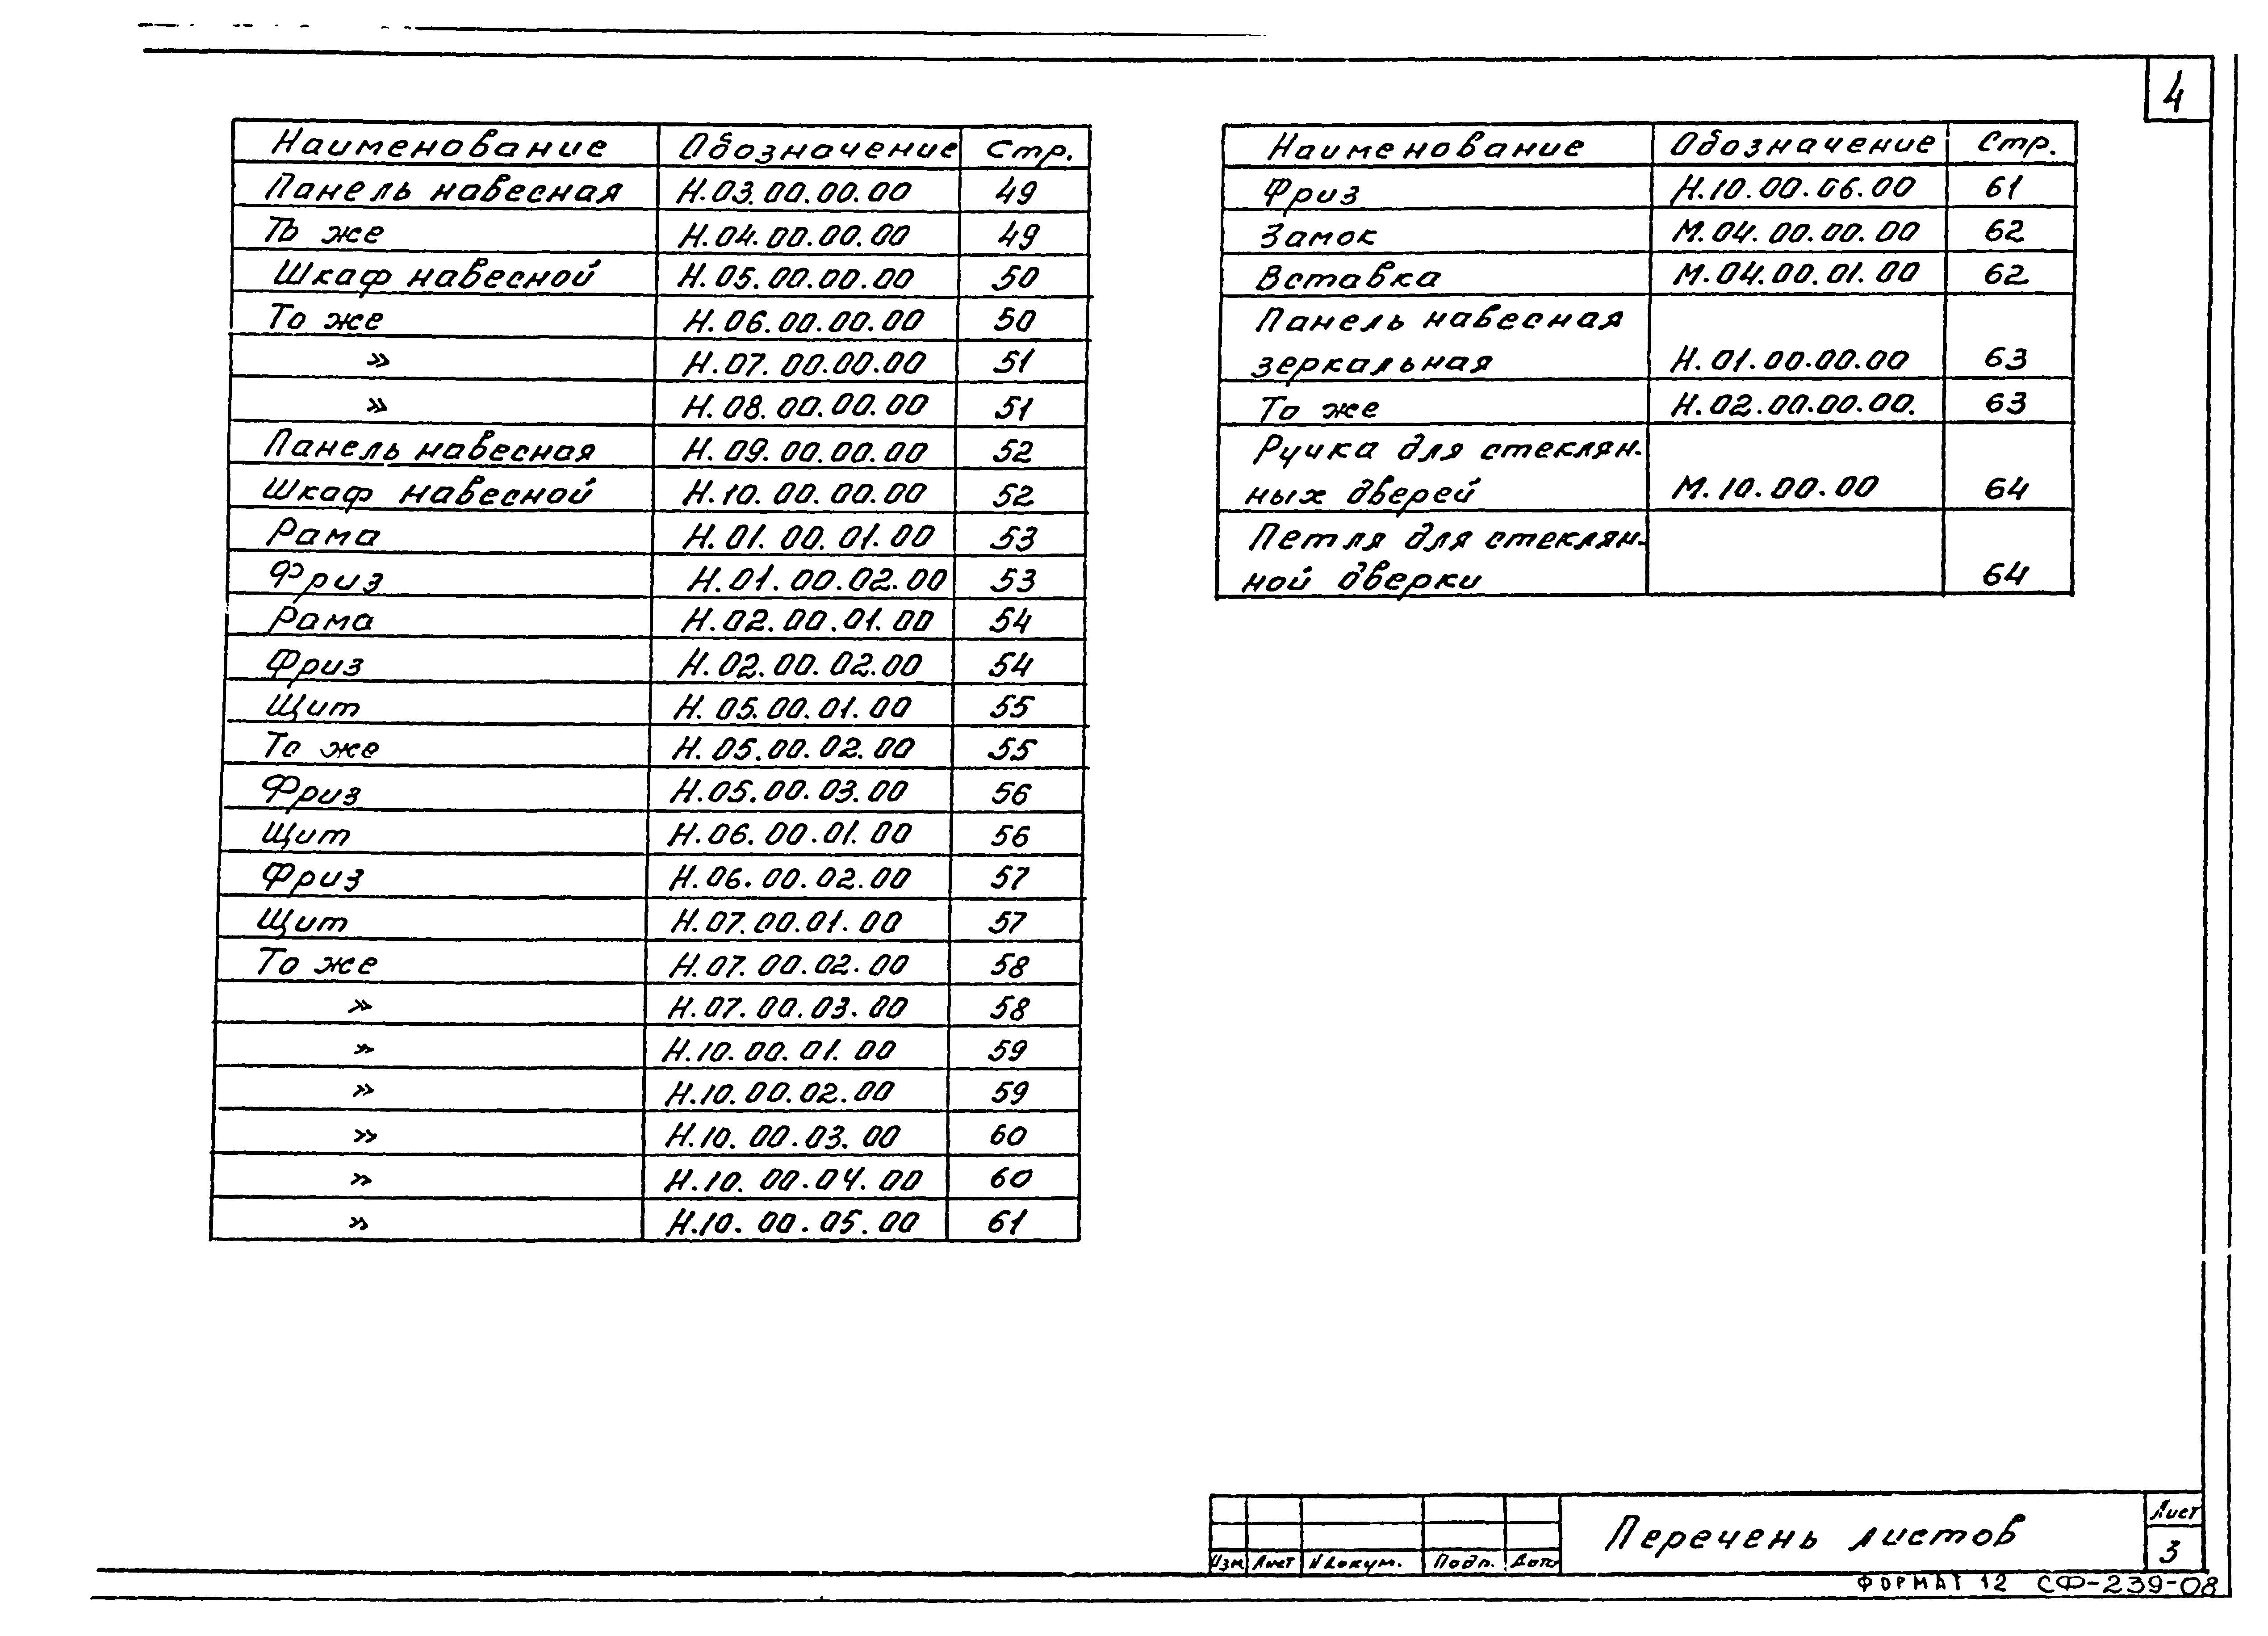 4
Наименование Обозначение Стр.
Панель навесная Н.03.00.00.00 49
То же Н.04.00.00.00 49
Шкаф навесной Н.05.00.00.00 50
То же Н.06.00.00.00 50
» Н.07.00.00.00 51
» Н.08.00.00.00 51
Панель навесная Н.09.00.00.00 52
Шкаф навесной Н.10.00.00.00 52
Рама Н.01.00.01.00 53
Фриз Н.01.00.02.00 53
Рама Н.02.00.01.00 54
Фриз Н.02.00.02.00 54
Щит Н.05.00.01.00 55
То же Н.05.00.02.00 55
Фриз Н.05.00.03.00 56
Щит Н.06.00.01.00 56
Фриз Н.06.00.02.00 57
Щит Н.07.00.01.00 57
То же Н.07.00.02.00 58
» Н.07.00.03.00 58
» Н.10.00.01.00 59
» Н.10.00.02.00 59
» Н.10.00.03.00 60
» Н.10.00.04.00 60
» Н.10.00.05.00 61
Наименование Обозначение Стр.
Фриз Н.10.00.06.00 61
Замок М.04.00.00.00 62
Вставка М.04.00.01.00 62
Панель навесная
зеркальная Н.01.00.00.00 63
То же Н.02.00.00.00. 63
Ручка для стеклян-
ных дверей М.10.00.00 64
Петля для стеклян-
ной дверки 64
Изм Лист № докум. Подп. Дата
Перечень листов
Лист
3
ФОРМАТ 12 СФ-239-08